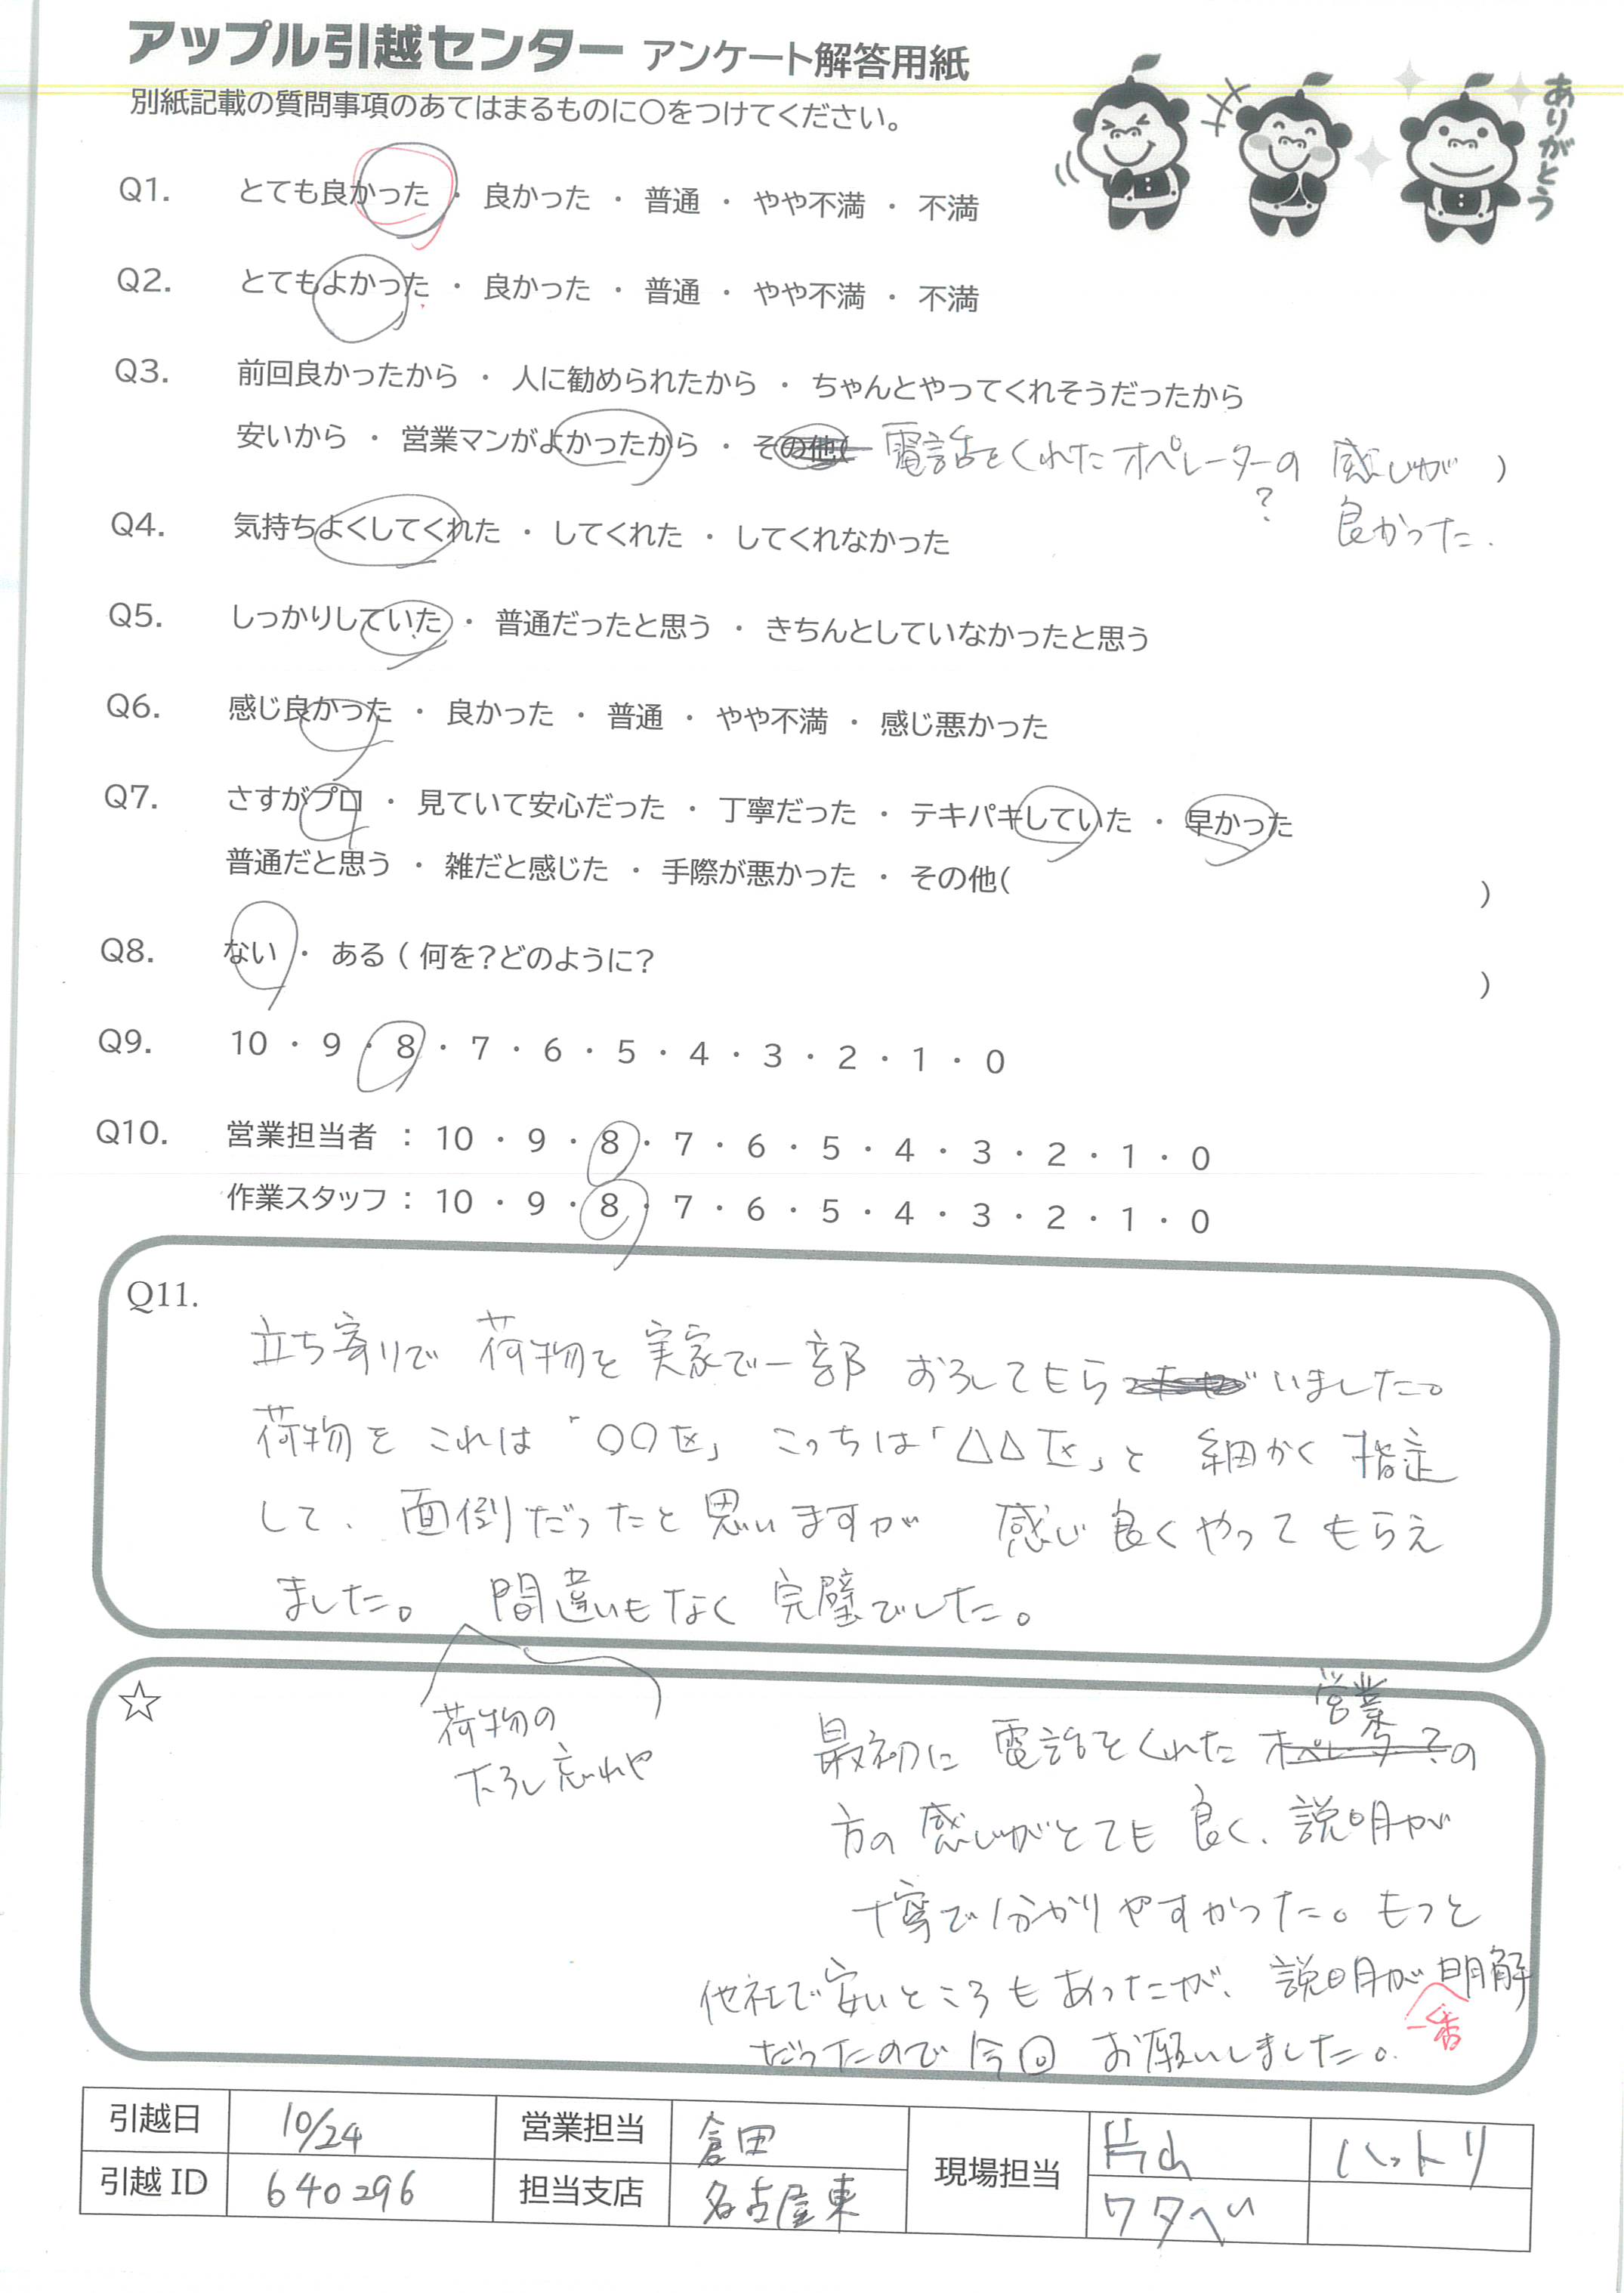 アップル引越センター アンケート解答用紙
別紙記載の質問事項のあてはまるものに○をつけてください。
ありがとう
Q1. とても良かった ・ 良かった ・ 普通 ・ やや不満 ・ 不満
Q2. とてもよかった ・ 良かった ・ 普通 ・ やや不満 ・ 不満
Q3. 前回良かったから ・ 人に勧められたから ・ ちゃんとやってくれそうだったから
安いから ・ 営業マンがよかったから ・ その他( 電話をくれたオペレーターの 感じが )
? 良かった.
Q4. 気持ちよくしてくれた ・ してくれた ・ してくれなかった
Q5. しっかりしていた ・ 普通だったと思う ・ きちんとしていなかったと思う
Q6. 感じ良かった ・ 良かった ・ 普通 ・ やや不満 ・ 感じ悪かった
Q7. さすがプロ ・ 見ていて安心だった ・ 丁寧だった ・ テキパキしていた ・ 早かった
普通だと思う ・ 雑だと感じた ・ 手際が悪かった ・ その他( )
Q8. ない ・ ある ( 何を?どのように? )
Q9. 10 ・ 9 ・ 8 ・ 7 ・ 6 ・ 5 ・ 4 ・ 3 ・ 2 ・ 1 ・ 0
Q10. 営業担当者 : 10 ・ 9 ・ 8 ・ 7 ・ 6 ・ 5 ・ 4 ・ 3 ・ 2 ・ 1 ・ 0
作業スタッフ : 10 ・ 9 ・ 8 ・ 7 ・ 6 ・ 5 ・ 4 ・ 3 ・ 2 ・ 1 ・ 0
Q11.
立ち寄りで 荷物を 実家で一部 おろしてもらいました。
荷物を これは「○○区」 こっちは「△△区」と 細かく 指定
して、面倒だったと思いますが 感じ良くやってもらえ
ました。 間違いもなく 完璧でした。
☆
荷物の
下ろし忘れや
営業
最初に 電話をくれた オペレーター?の
方の 感じがとても 良く、説明が
丁寧で分かりやすかった。もっと
他社で安いところもあったが、説明が 明解
一番
だったので 今回 お願いしました。
引越日 10/24 営業担当 倉田 現場担当 片山 ハットリ
引越 ID 640296 担当支店 名古屋東 ワタベい